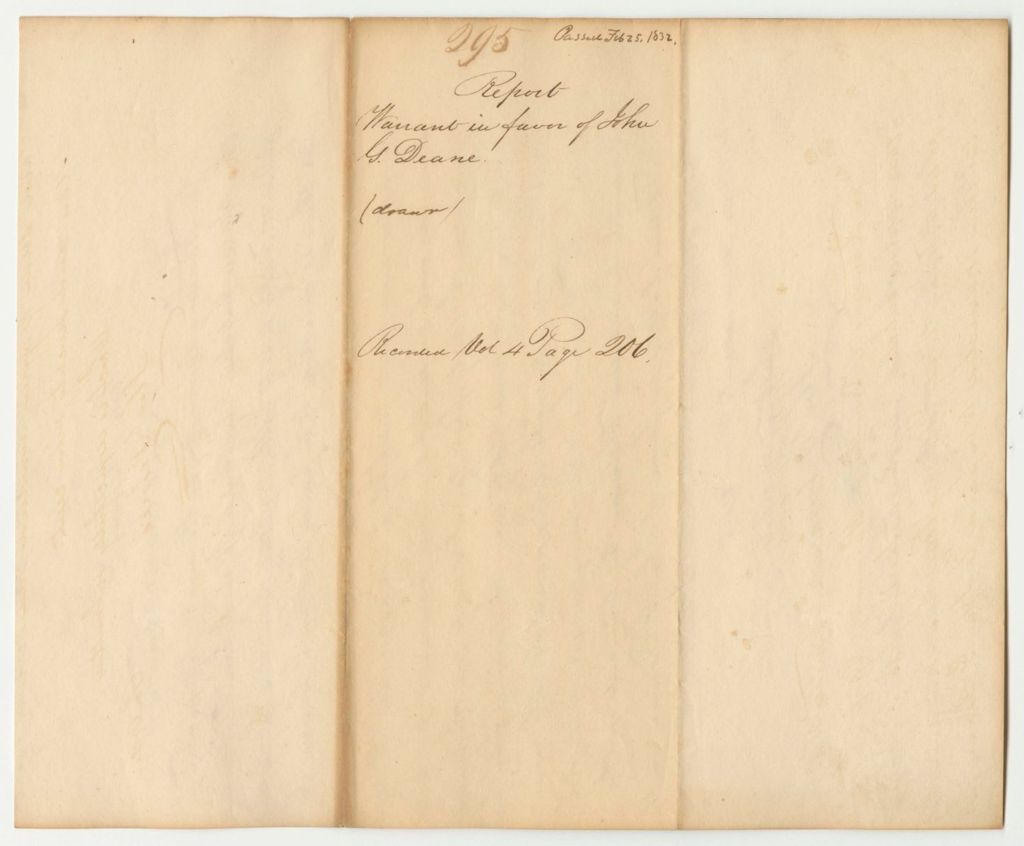 295
Passed Feb 25, 1832.
Report
Warrant in favor of John
G. Deane.
(drawn)
Recorded Vol 4 Page 206.